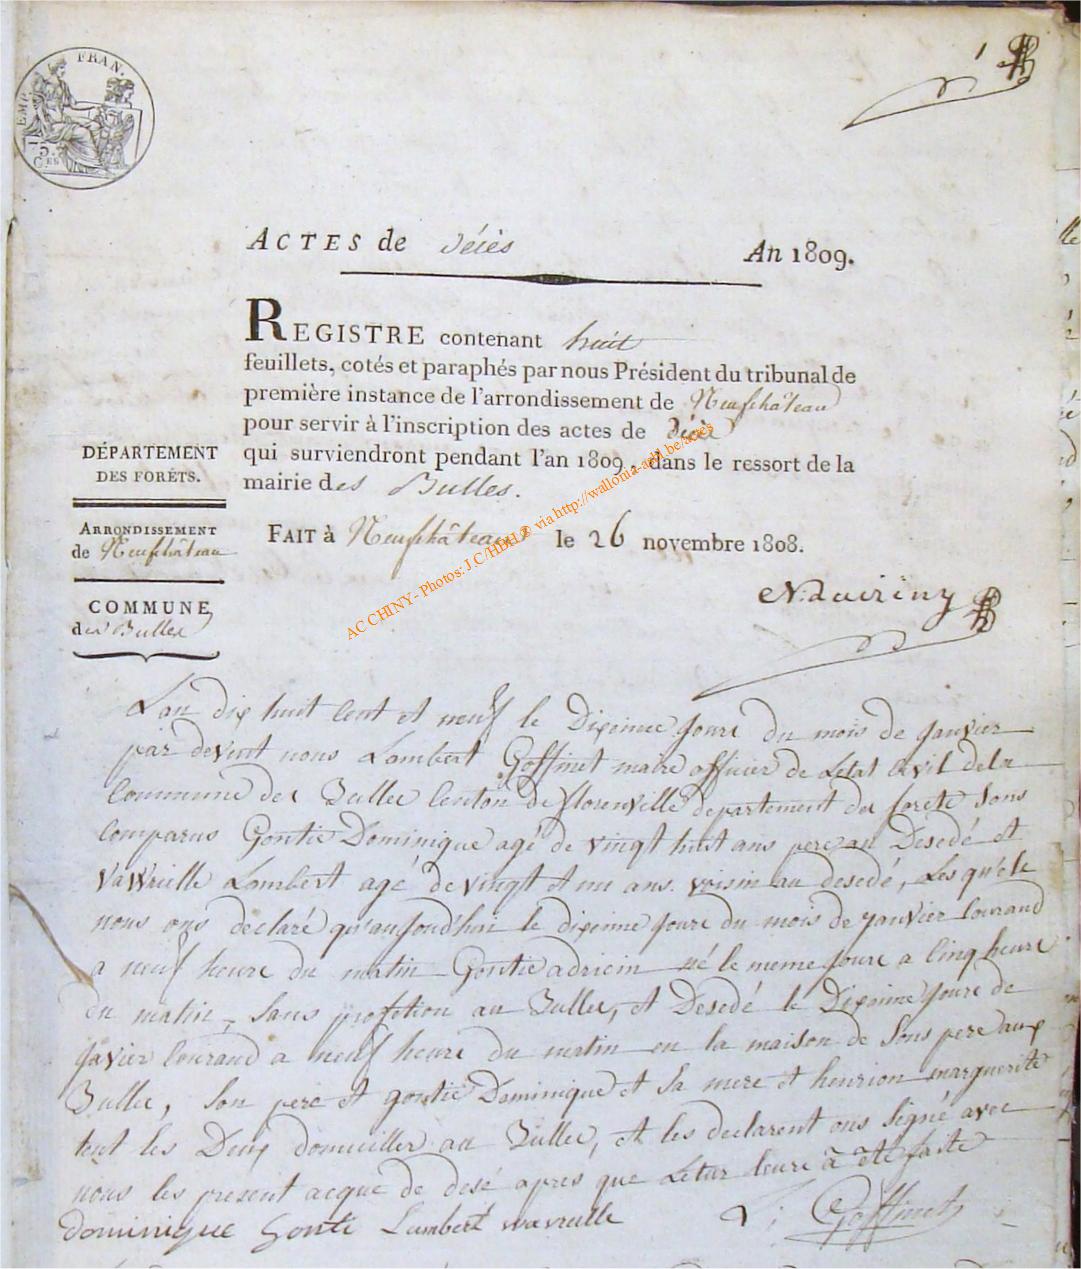 EMP. FRAN.
75.
C.ES
1
ACTES de décès An 1809.
REGISTRE contenant huit
feuillets, cotés et paraphés par nous Président du tribunal de
première instance de l'arrondissement de Neufchâteau
pour servir à l'inscription des actes de décès
qui surviendront pendant l'an 1809, dans le ressort de la
mairie des Bulles.
DÉPARTEMENT
DES FORÊTS.
ARRONDISSEMENT
de Neufchâteau
COMMUNE
des Bulles
FAIT à Neufchâteau le 26 novembre 1808.
AC CHINY - Photos: J C/HDH © via http://wallonia-asbl.be/actes
L'an dix huit cent et neuf le Dixieme Jour du mois de janvier
par devent nous Lambert Goffinet maire officier de Letat Civil dela
Commune des Bulle Centon de florenville departement des forete Sons
Comparus Gontie Dominique agé de vingt huit ans pere au Desedé et
Vavreille Lambert agé de vingt et un ans voisin au desedé, Les quele
nous ons declaré qu'aujoud'hui le dixieme Joure du mois de janvier Courand
a neuf heure du matin Gontie adriein né le meme Joure a Cinq heure
du matin, Sans profetion au Bulle, et Desedé le Dixieme Joure de
Javier Courand a neuf heure du matin en la maison de Sons pere aux
Bulle, Son pere et gontie Dominique et Sa mere et henrion marguerite
tout les Deux domiciller au Bulle, et les declarent ons Signé avec
nous les present acque de desé apres que Letur leure à été faite
dominique Gontie Lambert vavreille L: Goffinet